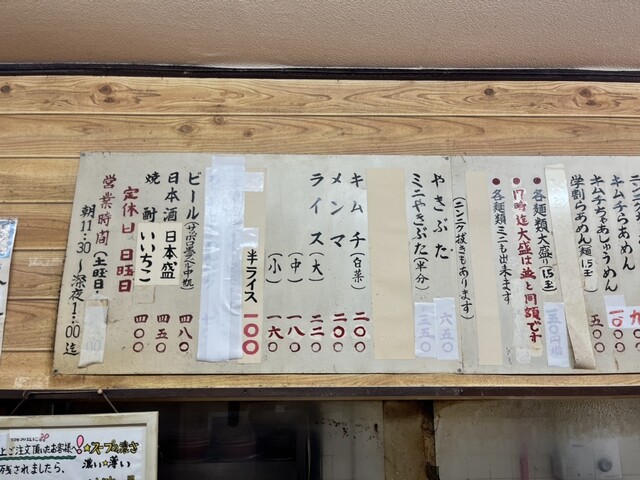 キムチらあめん
キムチちゃあしゅうめん
学割らあめん(麺1.5玉) 五〇〇
各麺類大盛り(1.5玉) 五〇円増
●17時迄大盛は並と同額です
●各麺類ミニも出来ます
(ニンニク抜きもあります)
やきぶた 六五〇
ミニやきぶた(半分) 三五〇
キムチ(白菜) 二〇〇
メンマ 二〇〇
ライス(大) 二二〇
(中) 一八〇
(小) 一六〇
半ライス 一〇〇
ビール 四八〇
日本酒 日本盛 四五〇
焼酎 いいちこ 四〇〇
定休日 日曜日
営業時間 (土曜日
朝11:30〜深夜1:00迄
上ご注文頂いたお客様へ!
残されましたら、
☆スープの濃さ
濃い☆薄い